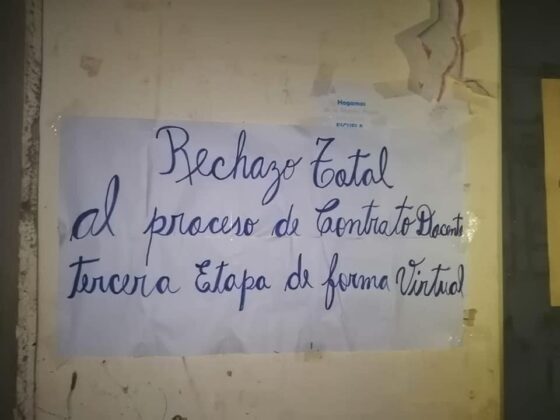 Hagamos
Rechazo Total
al proceso de Contrato Docente
tercera Etapa de forma Virtual